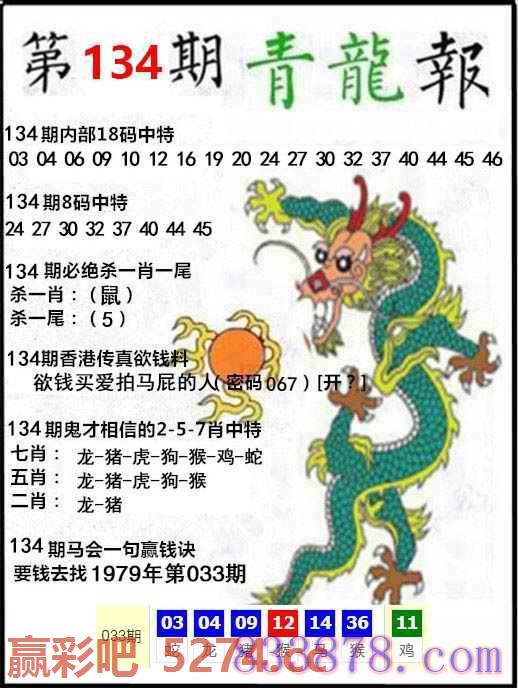 第134期青龍報
134期内部18码中特
03 04 06 09 10 12 16 19 20 24 27 30 32 37 40 44 45 46
134期8码中特
24 27 30 32 37 40 44 45
134期必绝杀一肖一尾
杀一肖：（鼠）
杀一尾：（5）
134期香港传真欲钱料
欲钱买爱拍马屁的人（密码067）[开？]
134期鬼才相信的2-5-7肖中特
七肖： 龙-猪-虎-狗-猴-鸡-蛇
五肖： 龙-猪-虎-狗-猴
二肖： 龙-猪
134期马会一句赢钱诀
要钱去找1979年第033期
033期 03 04 09 12 14 36 11
蛇 龙 猪 猴 马 猴 鸡
赢彩吧 5274.cc
833878.com